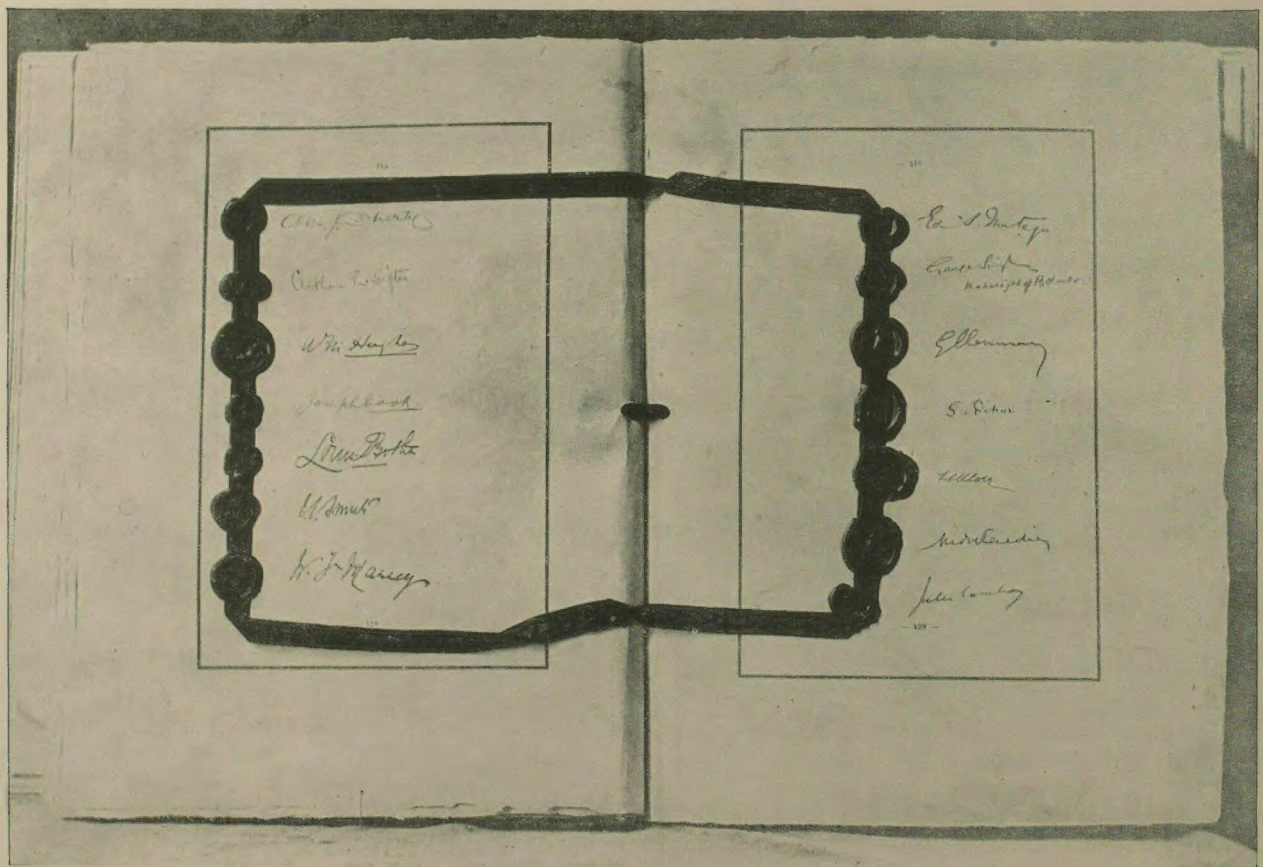 Chas. J. Doherty
Arthur L. Sifton
W M Hughes
Joseph Cook
Louis Botha
J. C. Smuts
W. F. Massey
Ed. S. Montagu
Ganga Singh
Maharajah of Bikaner
G Clemenceau
S. Pichon
LL Klotz
André Tardieu
Jules Cambon
— 429 —